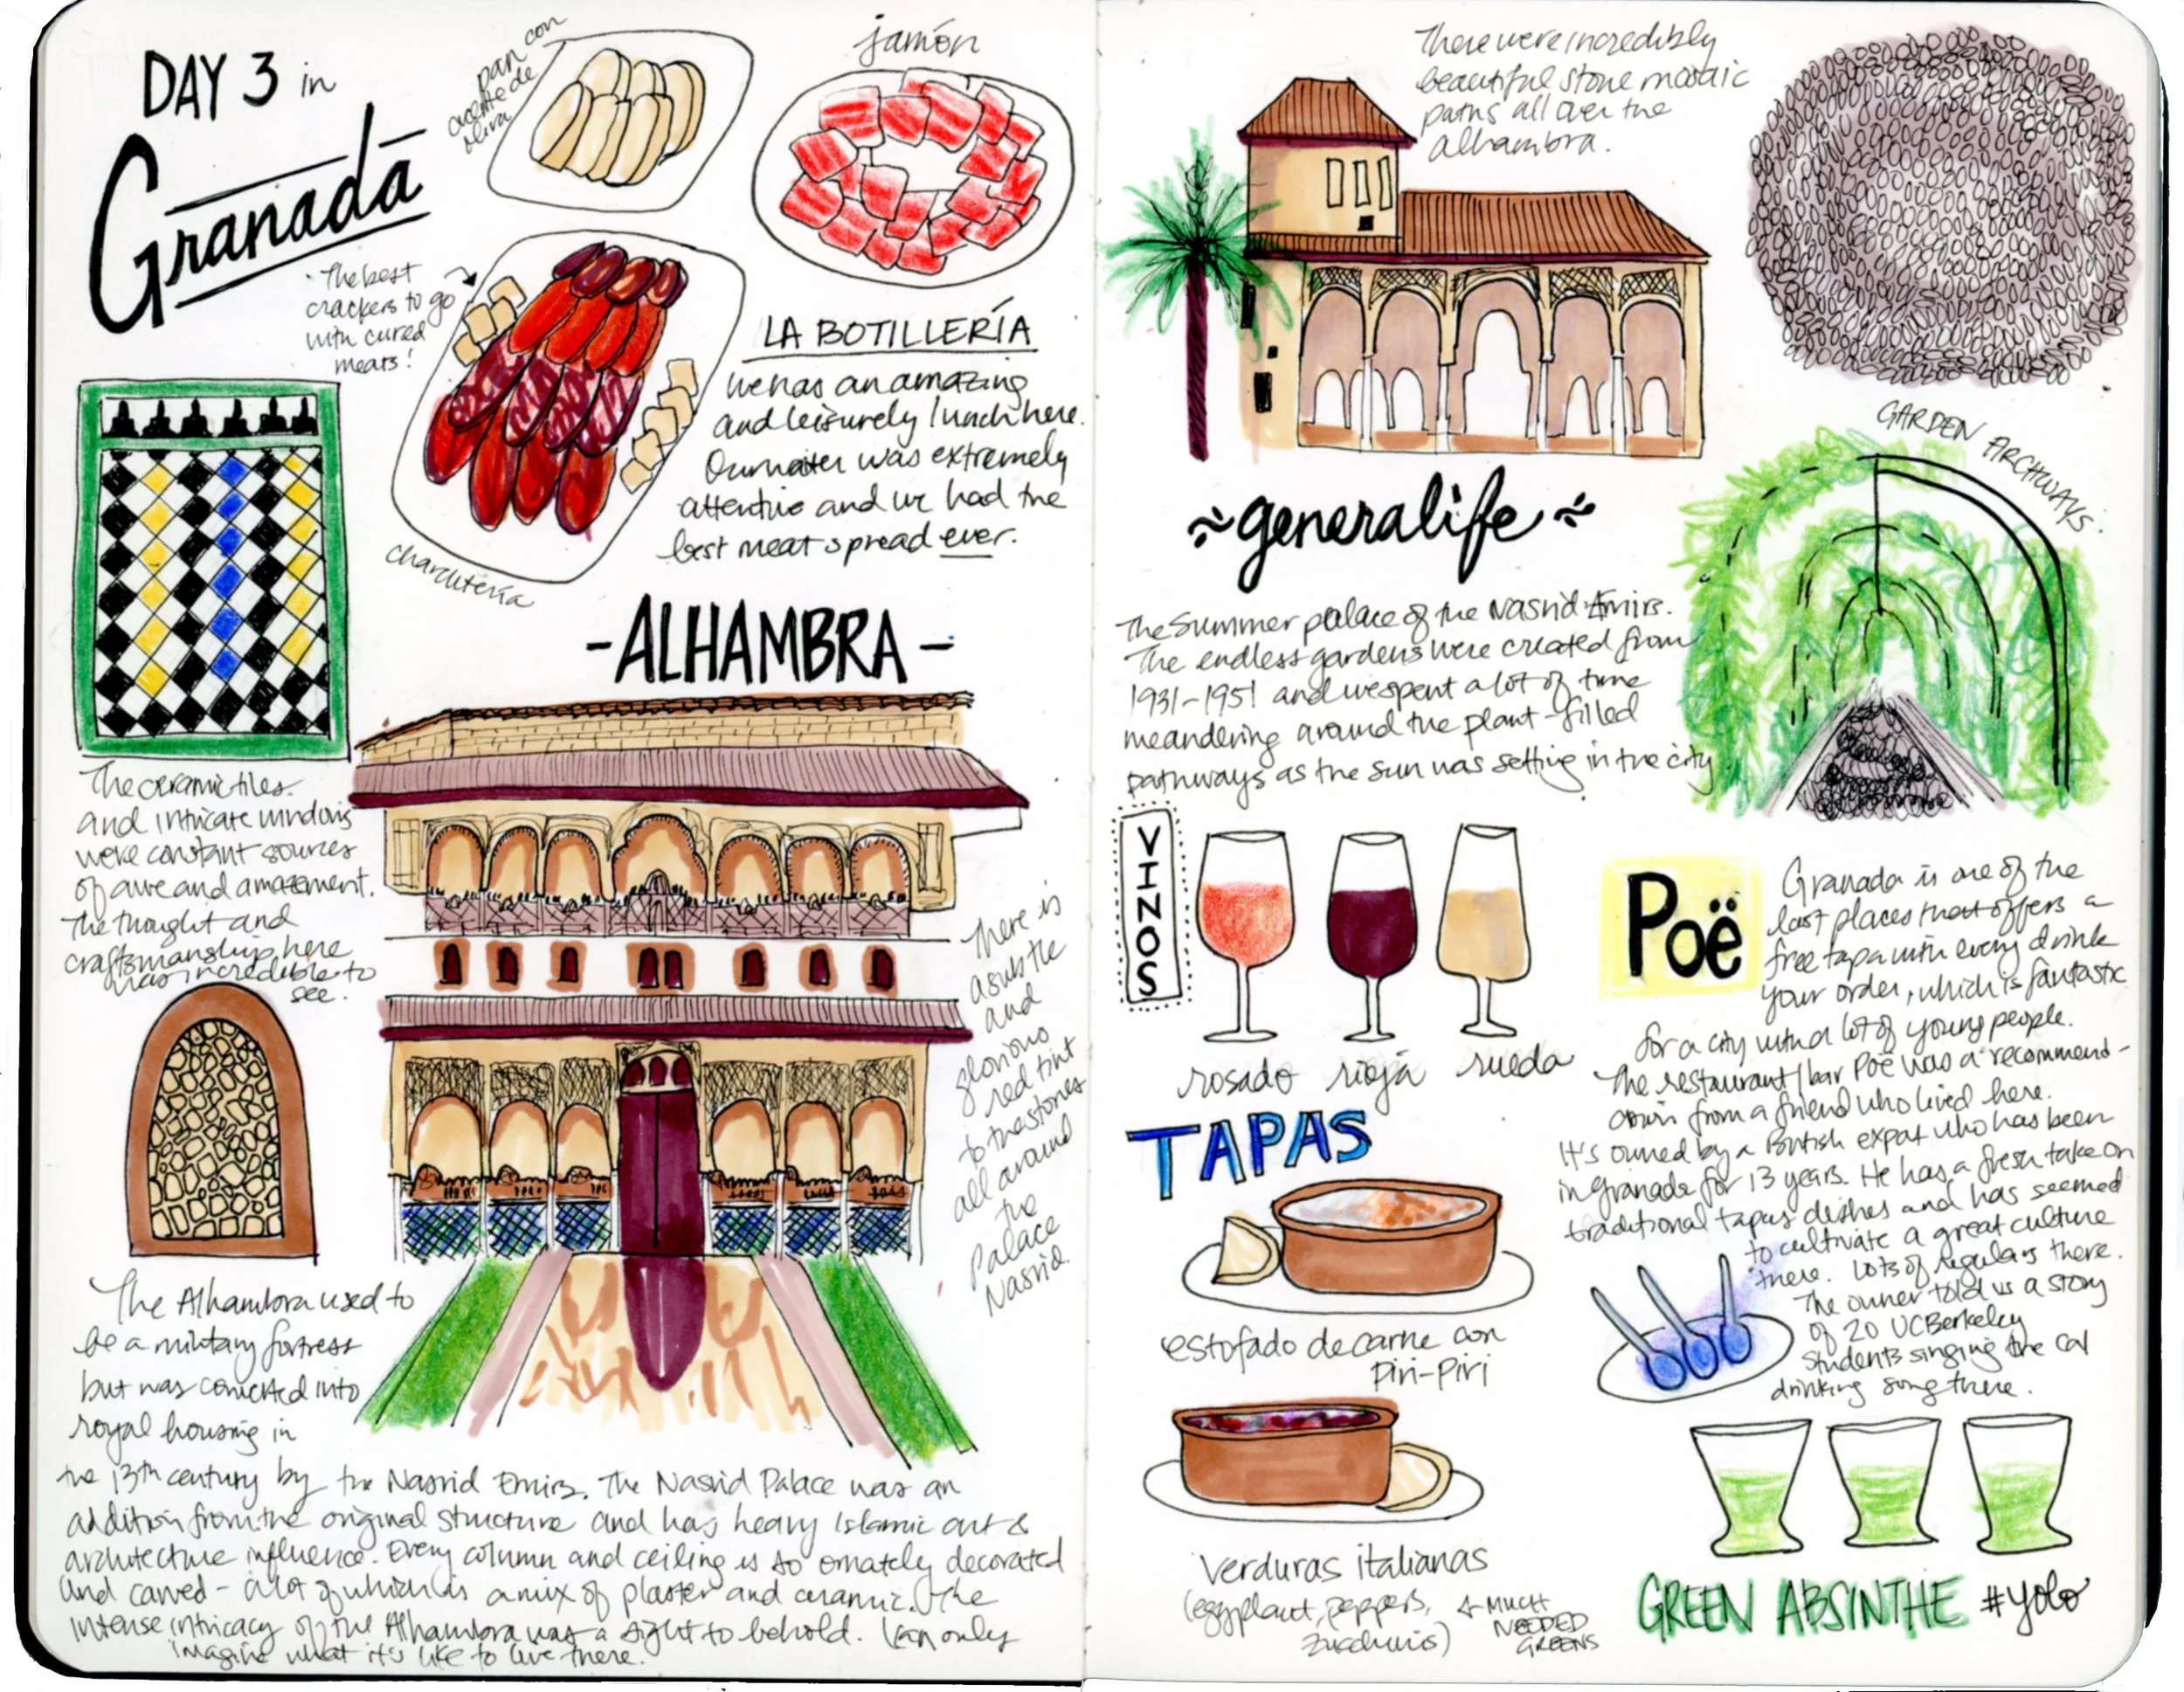 DAY 3 in
Granada
pan con
aceite de
oliva
jamón
The best
crackers to go
with cured
meats!
charcutería
LA BOTILLERÍA
We has an amazing
and leisurely lunch here.
Our waiter was extremely
attentive and we had the
best meat spread ever.
The ceramic tiles
and intricate windows
were constant sources
of awe and amazement.
The thought and
craftsmanship here
was incredible to
see.
-ALHAMBRA-
There is
a subtle
and
glorious
red tint
to the stones
all around
the
Palace
Nasrid.
The Alhambra used to
be a military fortress
but was converted into
royal housing in
the 13th century by the Nasrid Emirs. The Nasrid Palace was an
addition from the original structure and has heavy Islamic art &
architecture influence. Every column and ceiling is so ornately decorated
and carved - a lot of which is a mix of plaster and ceramic. The
intense intricacy of the Alhambra was a sight to behold. I can only
imagine what it's like to live there.
There were incredibly
beautiful stone mosaic
paths all over the
alhambra.
GARDEN ARCHWAYS
~generalife~
The Summer palace of the Nasrid Emirs.
The endless gardens were created from
1931-1951 and we spent a lot of time
meandering around the plant-filled
pathways as the sun was setting in the city
VINOS
rosado rioja rueda
TAPAS
estofado de carne con
Piri-Piri
Verduras italianas
(eggplant, peppers,
zucchinis)
← MUCH
NEEDED
GREENS
Poë
Granada is one of the
last places that offers a
free tapa with every drink
your order, which is fantastic
for a city with a lot of young people.
The restaurant/bar Poë was a recommend-
ation from a friend who lived here.
It's owned by a British expat who has been
in granada for 13 years. He has a fresh take on
traditional tapas dishes and has seemed
to cultivate a great culture
there. Lots of regulars there.
The owner told us a story
of 20 UC Berkeley
students singing the cal
drinking song there.
GREEN ABSINTHE #yolo